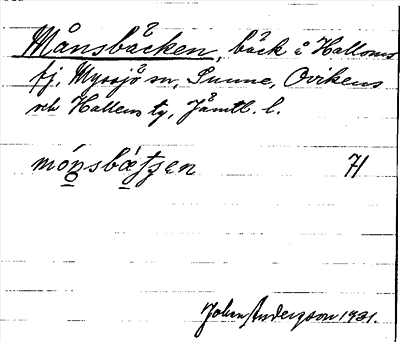 Månsbäcken, bäck å Hallens
fj, Myssjö sn, Sunne, Ovikens
och Hallens tg, Jämtl. l.
mónsbætʃen 71
Johan Anderzson 1931.